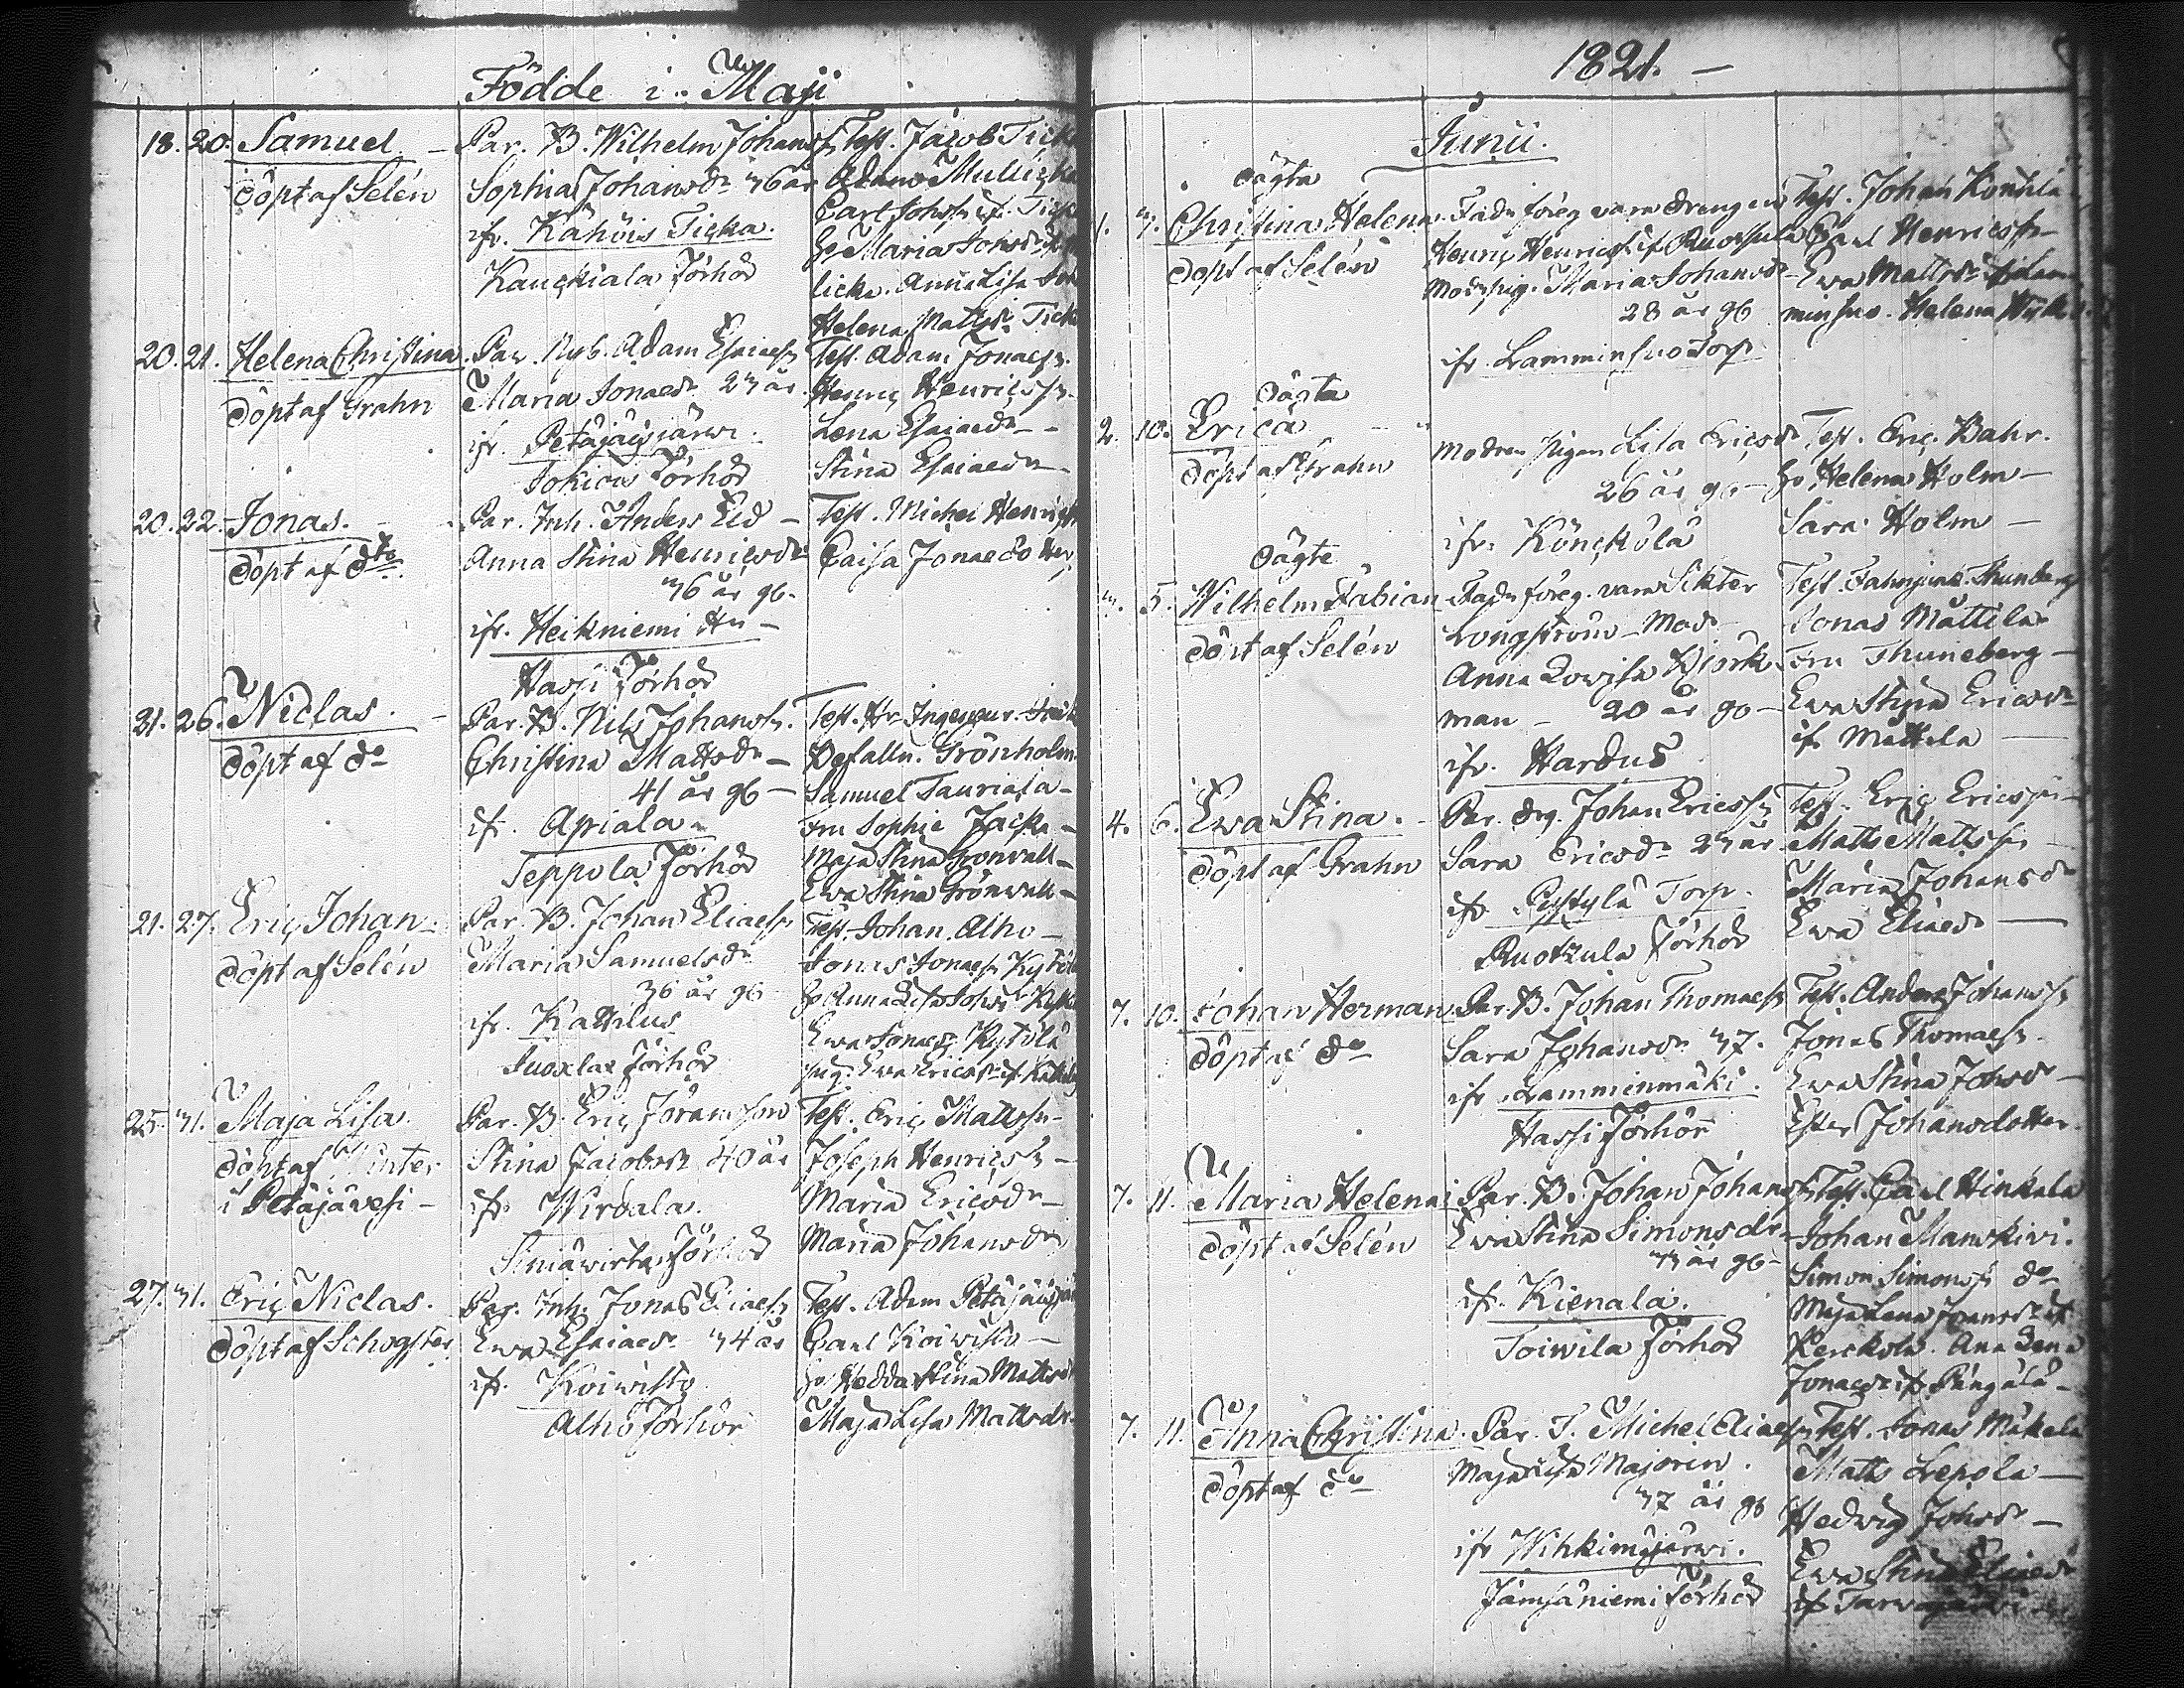 Födde i Maji
18. 20. Samuel
döpt af Selén
Par. B. Wilhelm Johanss.
Sophia Johansdr 36 år
ifr. Kähöis Ticka.
Kauckiala förhör
Test. Jacob Ticka
Adam Mullicka
Carl Johss. if.
Hu Maria
licka. Anna Lisa
Helena Mattsdr Ticka
20. 21. Helena Christina.
döpt af Grahn
Par. Nyb. Adam Esaiaess.
Maria Jonaedr 23 år
ifr. Petäjäisjärwi.
Jokiois förhör
Test. Adam Jonaess.
Henric Henricss.
Lena Esaiaedr
Stina Esaiaedr
20. 22. Jonas.
döpt af dto.
Par. Inh. Anders Eld
Anna Stina Henricsdr
36 år g.
ifr. Heikniemi
Hassi förhör
Test. Michel Henricss.
Caisa Jonaedotter
21. 26. Niclas.
döpt af do
Par. B. Nils Johanss.
Christina Mattsdr
41 år g.
if. Apiala
Teppola förhör
Test. Hr Ingenieur.
Befalln. Grönholm.
Samuel Tauriala
Fru Sophie Jack
Maja Stina Grönvall
Ewa Stina Grönwall
21. 27. Eric Johan
döpt af Selén
Par. B. Johan Eliaess.
Maria Samuelsdr
36 år g.
ifr. Kattilus
Suoxlax förhör
Test. Johan Alho
Jonas Jonaess. Kytölä
Hu Anna Lisa Johsdr Kytölä
Ewa Jonaedr Kytölä
pig. Ewa Ericsdr if. Kattilus
25. 31. Maja Lisa.
döpt af Winter
i Petäjävesi
Par. B. Eric Joransson
Stina Jacobsdr 40 år
if. Wirdala.
Siniäwirta förhör
Test. Eric Mattss.
Joseph Henricss.
Maria Ericsdr
Maria Johansdr
27. 31. Eric Niclas.
döpt af Schogster
Par. Inh. Jonas Eliaess.
Ewa Esaiaedr 34 år
if. Koiwisto
Alho förhör
Test. Adam Petäjäisjär
Carl Koiwisto
Hu Hedda Stina Mattsdr
Maja Lisa Mattsdr.
1821.
Junii.
oägta
1. 3. Christina Helena.
döpt af Selén
Fadr föreg. vara drengen
Henric Henricss. if. Ruotsula
Modr pig. Maria Johansdr
28 år g.
ifr. Lamminsuo Torp
Test. Johan
Carl Henricss.
Ewa Mattsdr if. Lam
minsuo. Helena
oägta
2. 10. Erica
döpt af Grahn
Modren pigan Lisa Ericsdr
26 år g.
ifr. Könckölä
Test. Eric Bahr.
Hu Helena Holm
Sara Holm
oägte
3. 5. Wilhelm Fabian
döpt af Selén
Fadr föreg. vara Sikter
Longström Mod
Anna Lowisa Björk
man 20 år g.
ifr. Hardus
Test. Fahnjunk. Thuneberg
Jonas Mattila
Fru Thuneberg
Ewa Stina Ericsdr
if. Mattila
4. 6. Ewa Stina.
döpt af Grahn
Par. drg. Johan Ericss.
Sara Ericsdr 23 år
ifr. Pystylä Torp.
Ruotzula förhör
Test. Eric Ericsson
Matts Mattsson
Maria Johansdr
Ewa Eliaedr
7. 10. Johan Herman
döpt af do
Par. B. Johan Thomaess.
Sara Johansdr 37.
ifr. Lamminmäki.
Hassi förhör
Test. Anders Johanss.
Jonas Thomaess.
Ewa Stina Johsdr
Ester Johansdotter.
7. 11. Maria Helena
döpt af Selén
Par. B. Johan Johanss.
Ewa Stina Simonsdr
33 år g.
if. Kienala.
Toiwila förhör
Test. Carl Hinkala
Johan Manskiwi.
Simon Simonss. do
Maja Lena Joansdr if.
Kerckola. Ana Lena
Jonaedr if. Pängälä
7. 11. Anna Christina.
döpt af do
Par. T. Michel Eliaess.
Maja Lisa Majorin.
37 år g.
ifr Wihkimäjärwi.
Jämsäniemi förhör
Test. Jonas Mäkelä
Matts Lepola
Hedwig Johsdr
Ewa Stina Eliaedr
if.